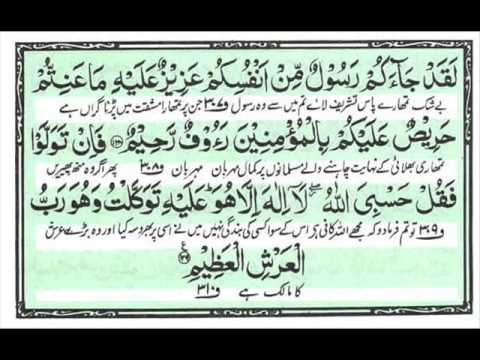 لَقَدْ جَآءَكُمْ رَسُوْلٌ مِّنْ اَنْفُسِكُمْ عَزِيْزٌ عَلَيْهِ مَا عَنِتُّمْ
بے شک تمھارے پاس تشریف لائے تم میں سے وہ رسول ف۳۰۷ جن پر تمھارا مشقت میں پڑنا گراں ہے
حَرِيْصٌ عَلَيْكُمْ بِالْمُؤْمِنِيْنَ رَءُوْفٌ رَّحِيْمٌ ۝۱۲۸ فَاِنْ تَوَلَّوْا
تمھاری بھلائی کے نہایت چاہنے والے مسلمانوں پر کمال مہربان مہربان ف۳۰۸ پھر اگر وہ منھ پھیریں
فَقُلْ حَسْبِيَ اللّٰهُ لَآ اِلٰهَ اِلَّا هُوَ عَلَيْهِ تَوَكَّلْتُ وَهُوَ رَبُّ
ف۳۰۹ تو تم فرما دو کہ مجھے اللہ کافی ہے اس کے سوا کسی کی بندگی نہیں میں نے اسی پر بھروسہ کیا اور وہ بڑے عرش
الْعَرْشِ الْعَظِيْمِ ۝۱۲۹ ع
کا مالک ہے ف۳۱۰